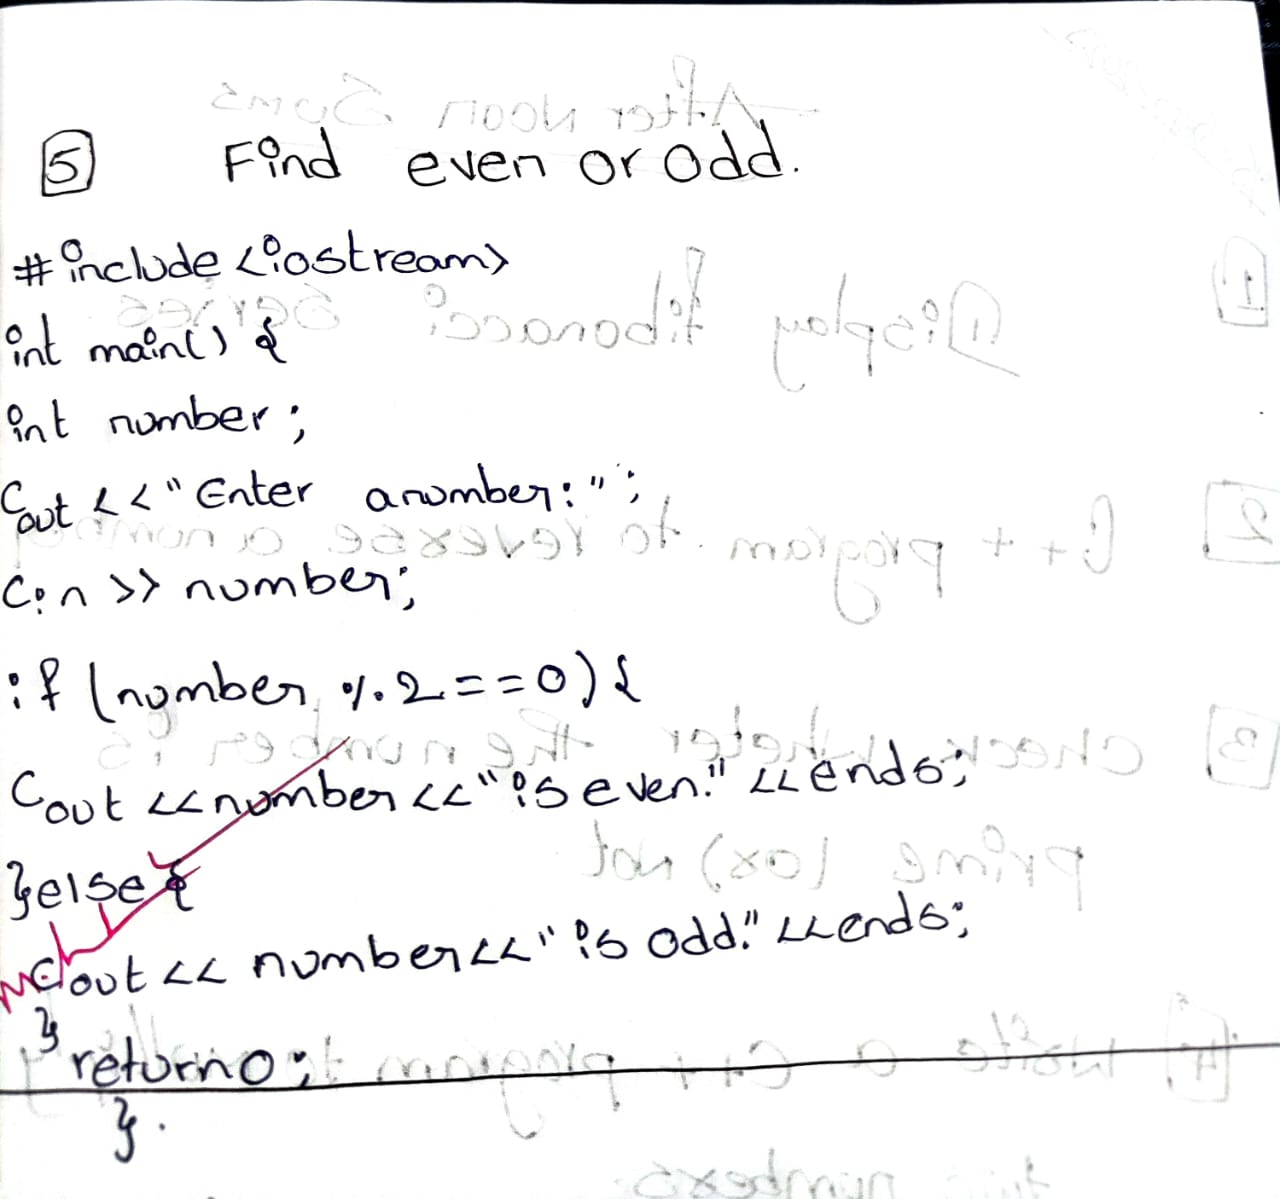 5 Find even or odd.
#include <iostream>
int main() {
int number;
Cout << "Enter anumber:";
Cin >> number;
if (number % 2 == 0) {
Cout << number << "is even." << ends;
}else {
Cout << number << "is odd." << ends;
}
return0;
}.